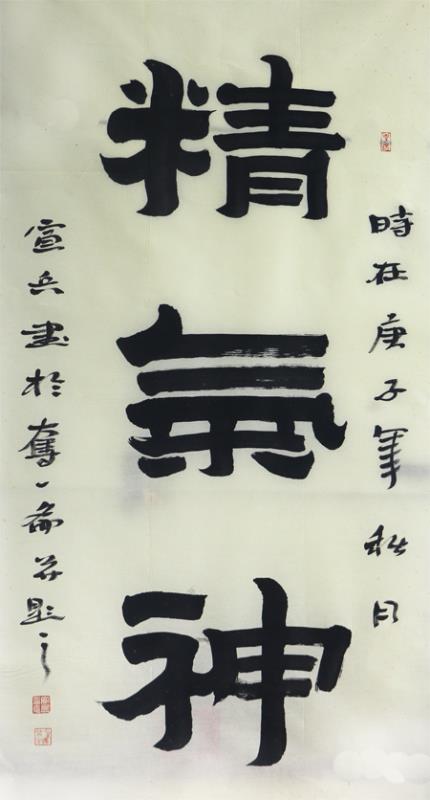 時在庚子年秋月
精氣神
宣兵書於奮一齋并題之